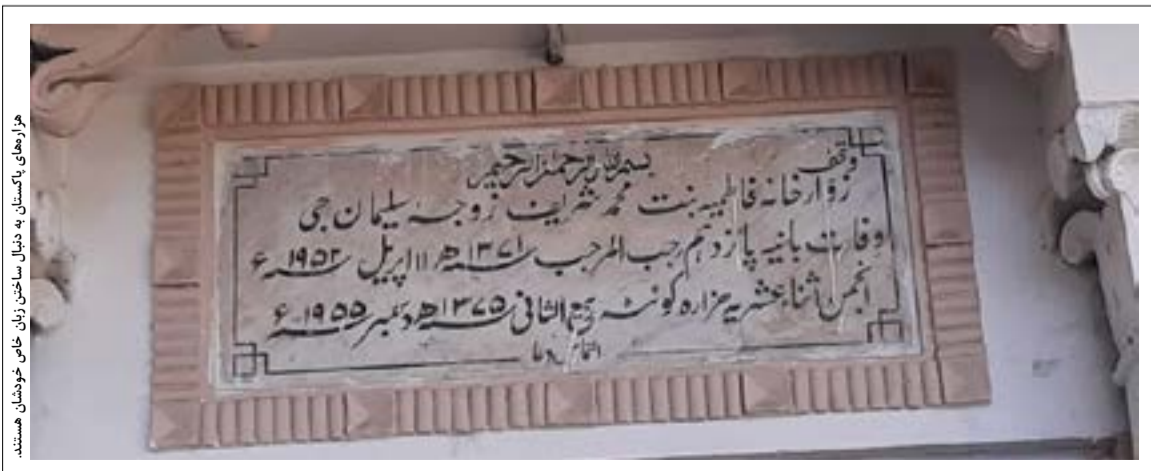 هزاره‌های پاکستان به دنبال ساختن زبان خاص خودشان هستند.
بسم الله الرحمن الرحیم
وقف
زوار خانہ فاطمیہ بنت محمد شریف زوجہ سلیمان جی
وفات بانیہ پازدہم رجب المرجب سنہ ۱۳۷۱ھ ۱۱ اپریل سنہ ۱۹۵۲ء
انجمن اثنا عشریہ ہزارہ کوئٹہ ربیع الثانی سنہ ۱۳۷۵ھ دسمبر سنہ ۱۹۵۵ء
التماس دعا